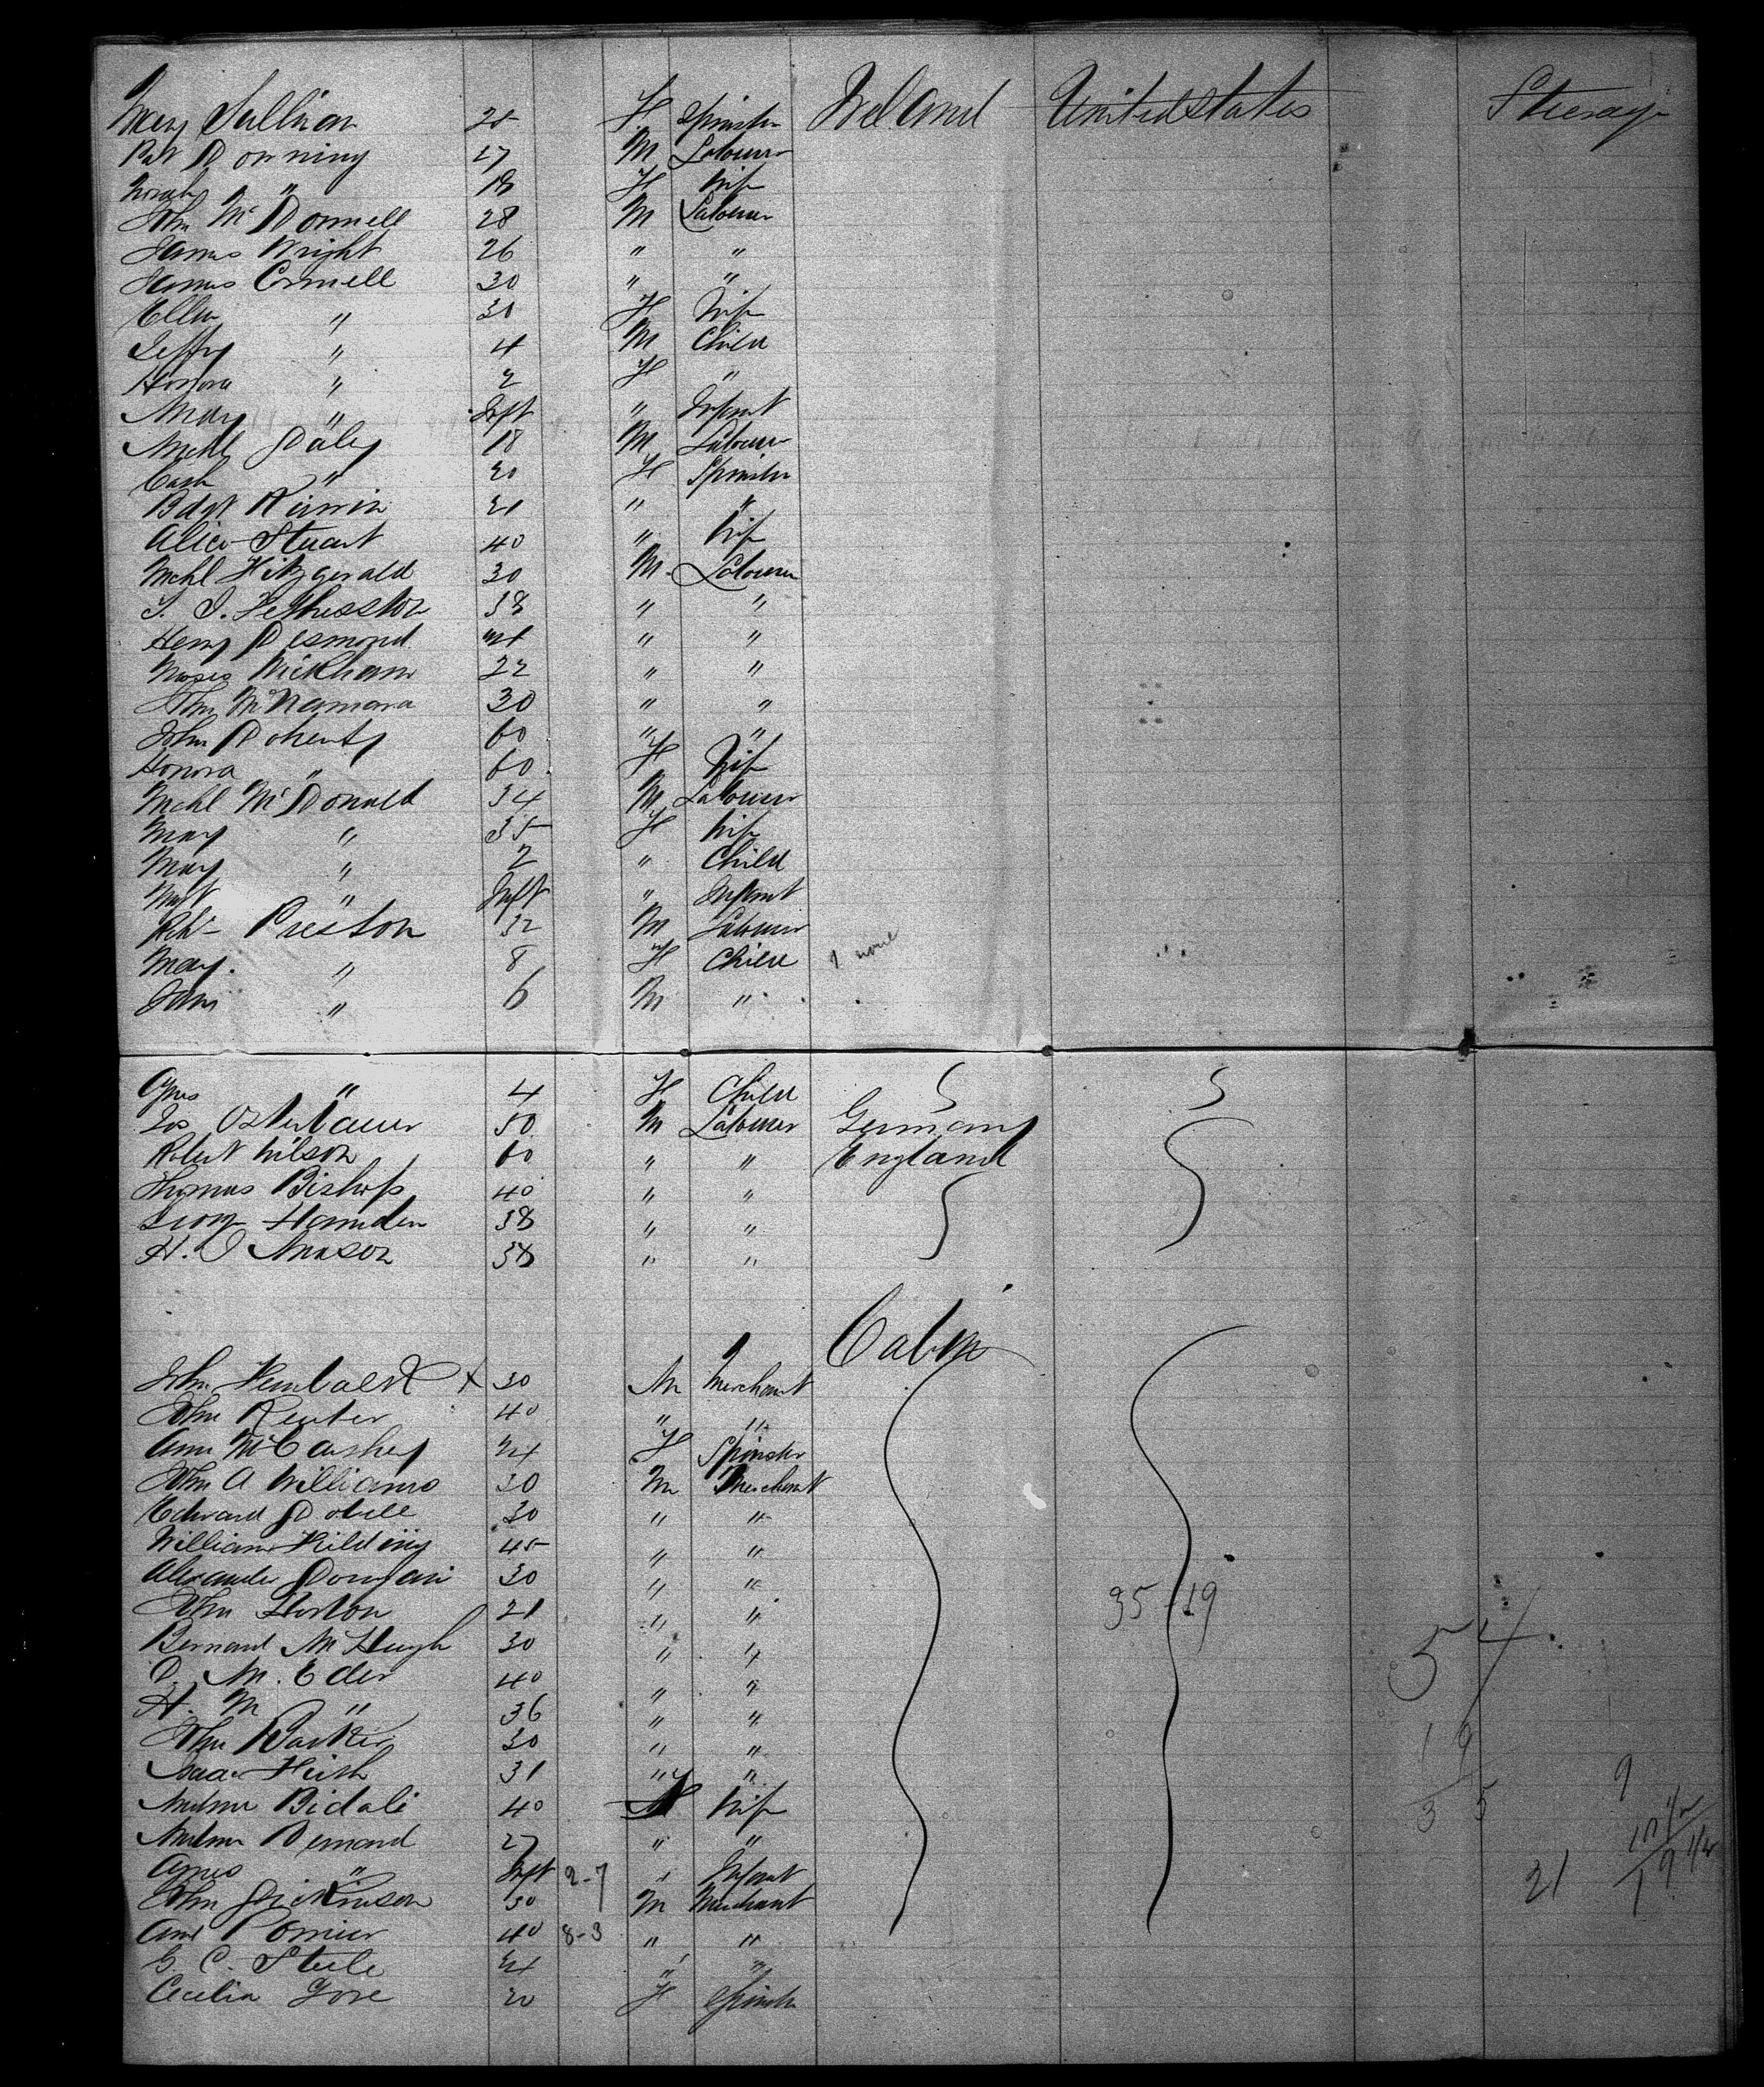 Mary Sullivan 25 F Spinster Ireland United States Steerage
Pat Downing 27 M Labourer
Norah " 18 F Wife
John McDonnell 28 M Labourer
James Wright 26 " "
James Connell 30 " "
Ellen " 30 F Wife
Jeffry " 4 M Child
Honora " 2 F "
Mary " Inft " Infant
Michl Daley 18 M Labourer
Cath " 20 F Spinster
Bdgt Kirwin 21 " "
Alice Stuart 40 " Wife
Michl Fitzgerald 30 M Labourer
38 " "
Henry Desmond 24 " "
Moses Wickham 22 " "
Jhn McNamara 30 " "
John Doherty 60 " "
Honora " 60 F Wife
Michl McDonald 34 M Labourer
Mary " 35 F Wife
Mary " 2 " Child
Mgt " Inft " Infant
Robt Preston 32 M Labourer
Mary " 8 F Child
" 6 M "
Agnes " 4 F Child
Jos Osterbauer 50 M Labourer Germany
Robert Wilson 60 " " England
Thomas Bishop 40 " "
George Hamden 38 " "
H. J Mason 38 " "
Cabin
John X 30 M Merchant
John Reuter 40 " "
Ann McCaskey 24 F Spinster
John A Williams 30 M Merchant
Edward Dobell 30 " "
William Hilding 45 " "
Alexander 30 " "
John Horton 21 " " 35 - 19
Bernard McHugh 30 " " 54
D. M. Eder 40 " "
H. M " 36 " "
John Barker 30 " " 19
Isaac Hirsh 31 " " 9
Bidali 40 F Wife 35
Bernard 27 " "
Agnes " Inft 2-7 " Infant 21
John Dickinson 30 M Merchant
40 8-3 " "
G. C. Steele 24 " "
Cecilia Gore 20 F Spinster